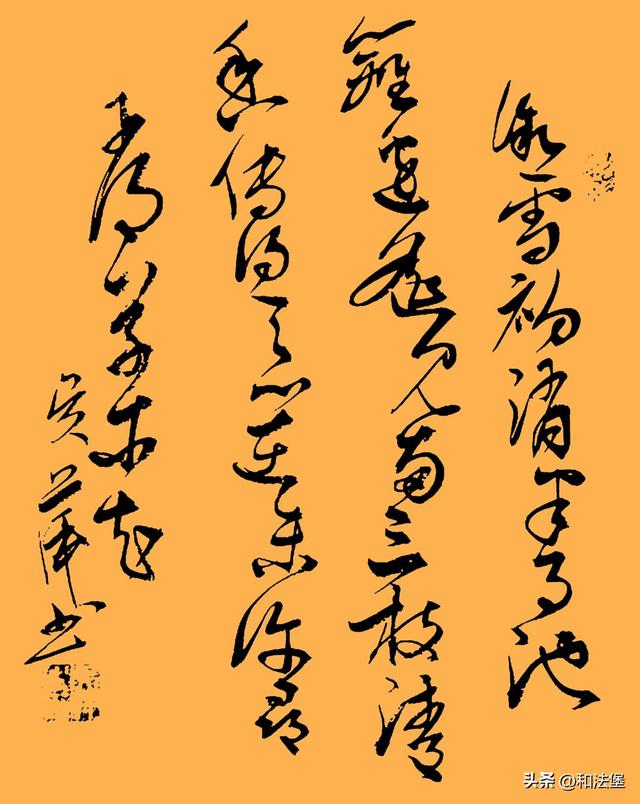 微雪初消半月池
篱边遥见两三枝清
香传得天心在未许寻
常草木知
吴 书
头条 @和法堡